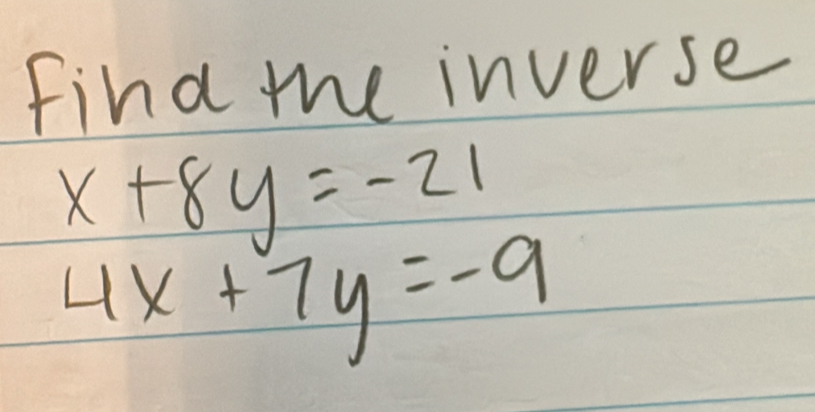 Find the inverse
x + 8y = -21
4x + 7y = -9